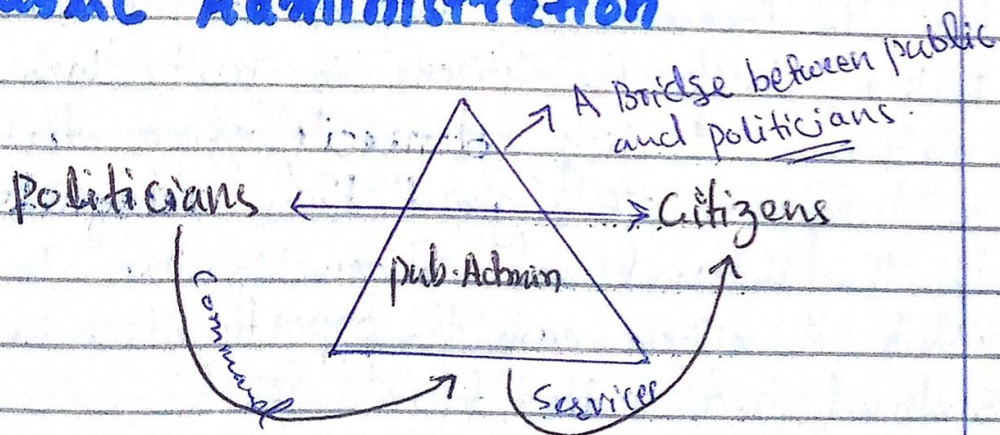 Administration
A Bridge between public
and politicians.
Politicians
Citizens
pub.Admin
Command
Services